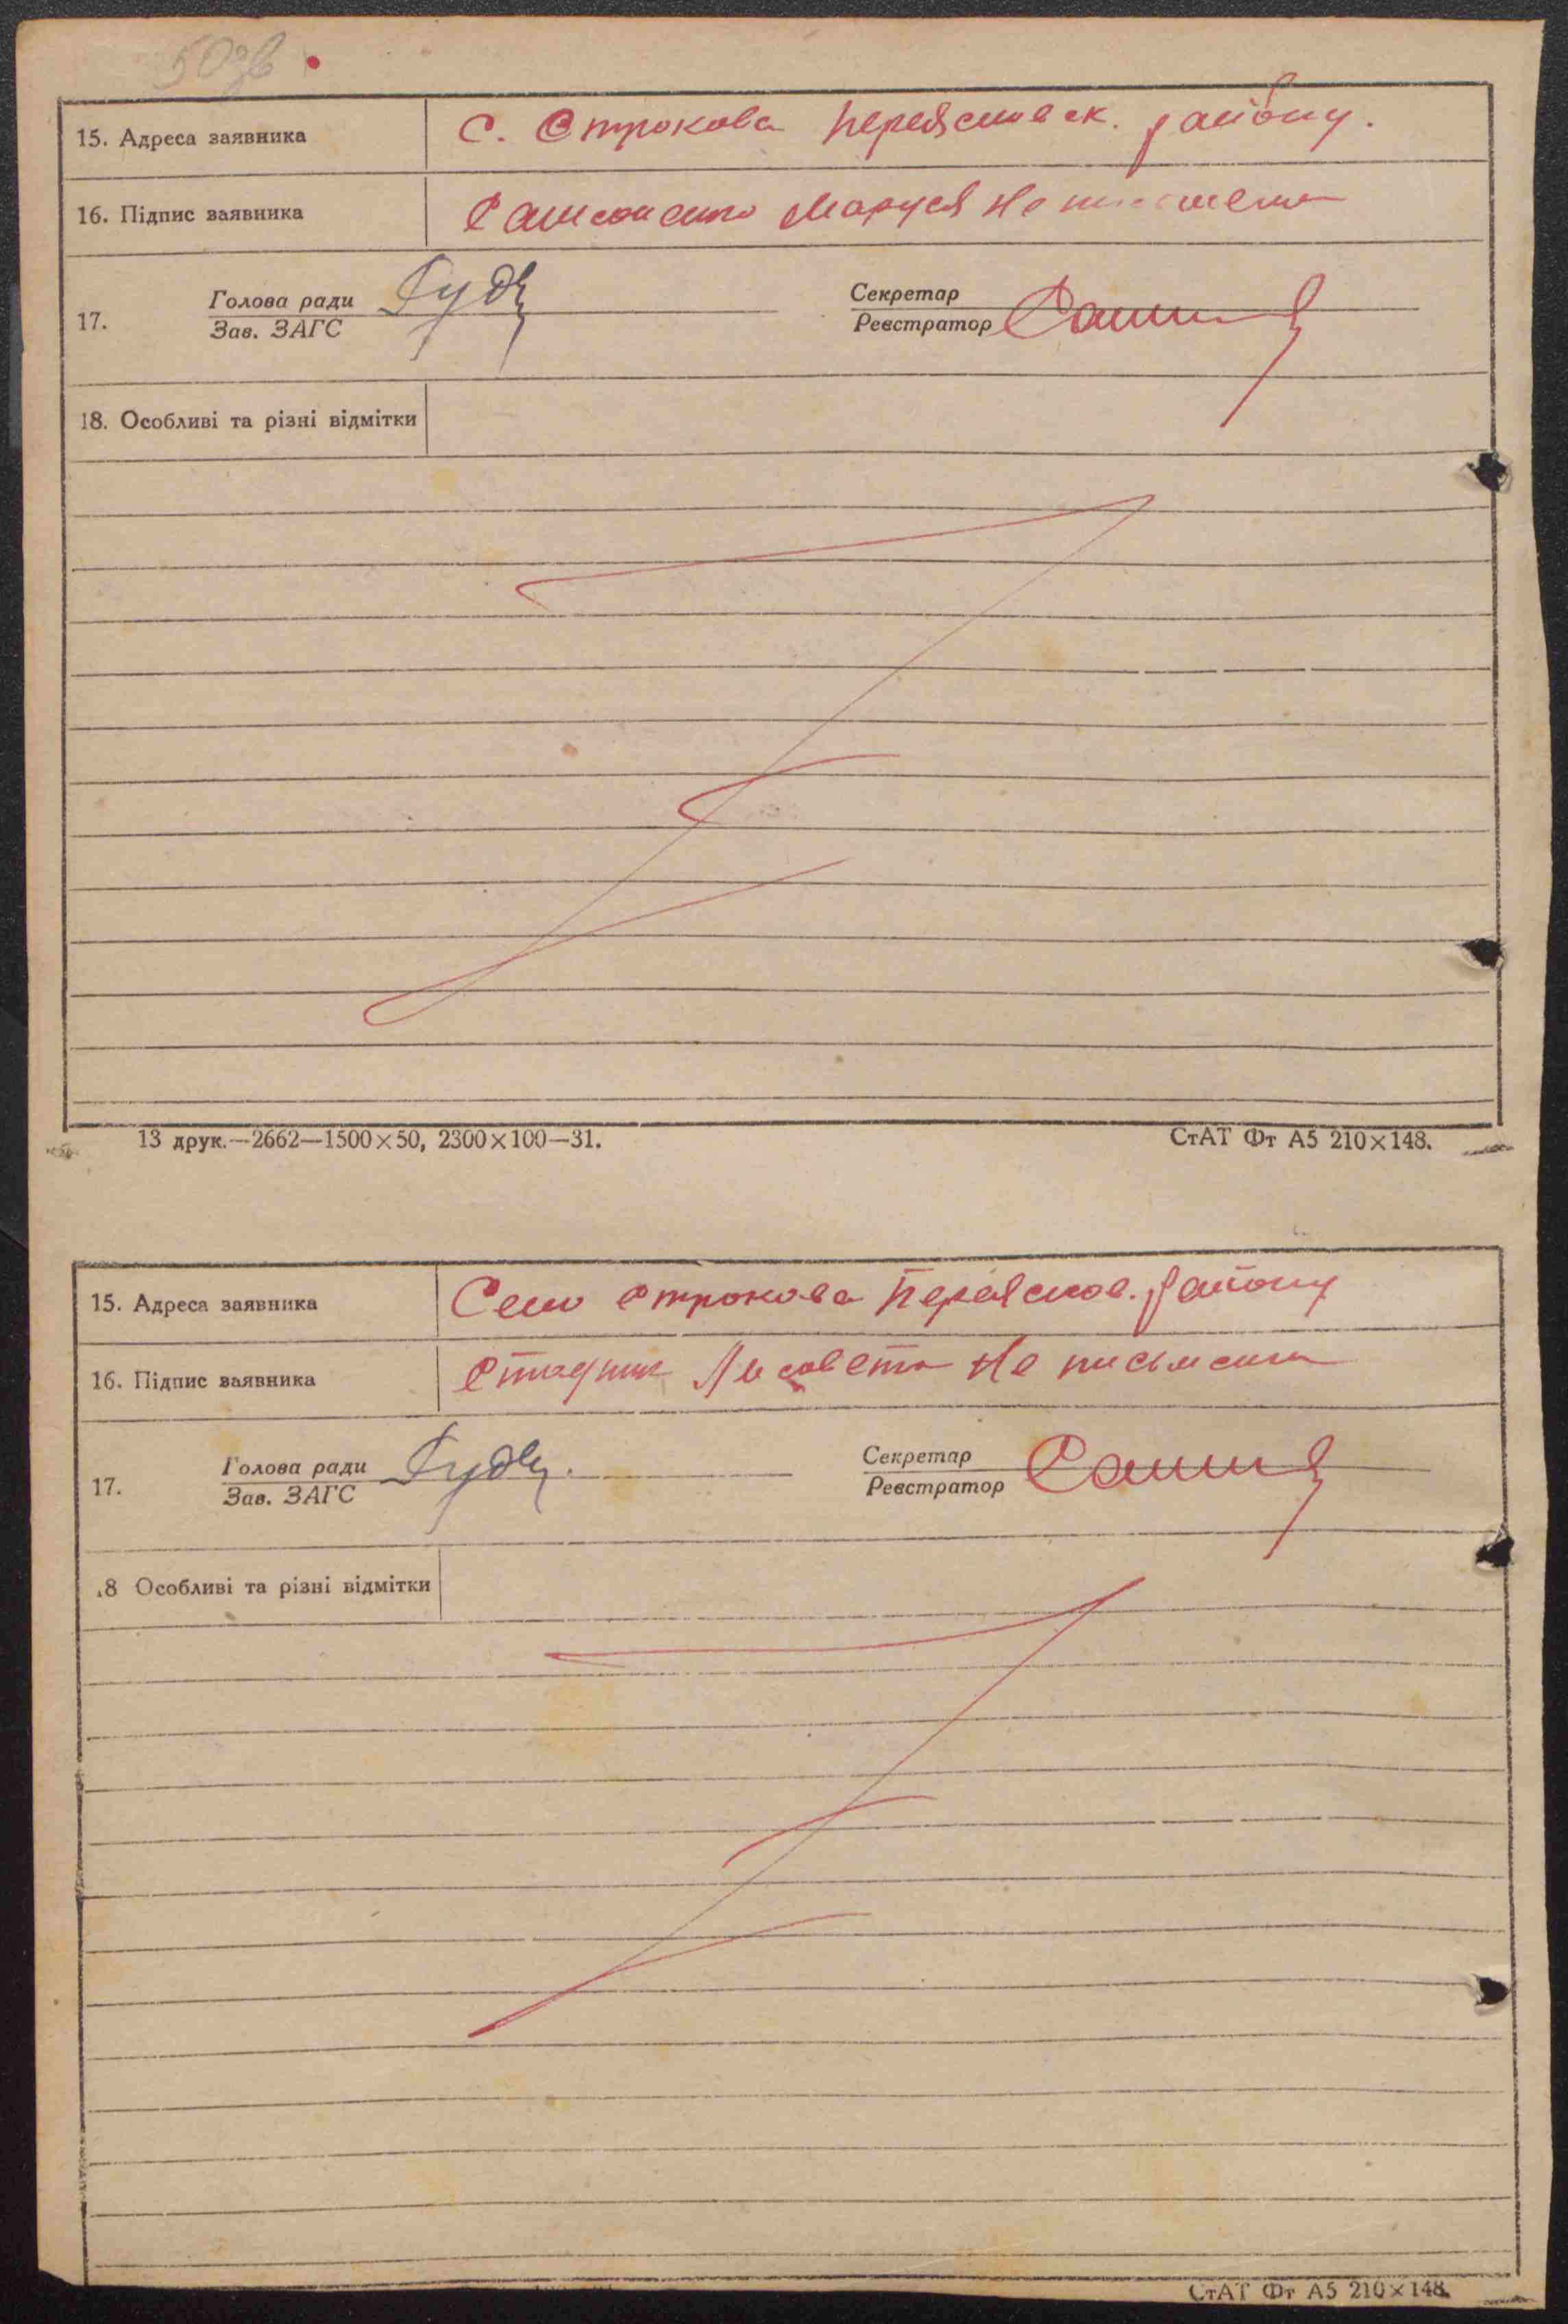 503в
15. Адреса заявника С. Строкова Переяславск. району.
16. Підпис заявника Самсоненко Маруся Не письмена
17. Голова ради Секретар
Зав. ЗАГС Реєстратор
18. Особливі та різні відмітки
13 друк.—2662—1500×50, 2300×100—31. СтАТ Фт А5 210×148.
15. Адреса заявника Село Строкова Переяслов. району
16. Підпис заявника Стадник Лисовета Не письмена
17. Голова ради Секретар
Зав. ЗАГС Реєстратор
.8 Особливі та різні відмітки
СтАТ Фт А5 210×148.